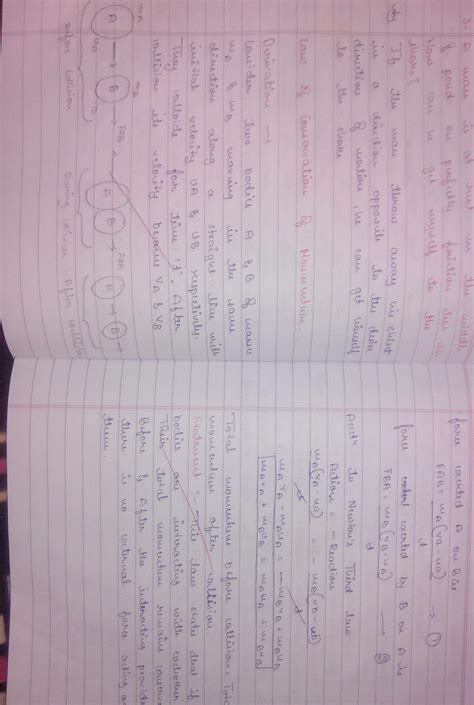 3. A man is at rest in the middle
of pond on perfectly
How can he get himself to the
shore?
Ans If the man throw away his shirt
in a direction opposite to the
direction of motion, he can get himself
to the shore
Law of Conservation of Momentum.
Derivation →
Consider two bodies A & B of masses
mA & mB moving in the same
direction along a straight line with
initial velocity uA & uB respectively.
They collide for time 't'. After
collision its velocity became vA & vB
mA
mB
FAB
FBA
A
B
A
B
A
B
uA
uB
Before collision
During collision
After collision
force exerted A on B is
FAB = mA(vA-uA) → ①
t
force exerted by B on A is
FBA = mB(vB-uB) → ②
t
Acc to Newton's Third law
Action = - Reaction
mA(vA-uA) = - mB(vB-uB)
mAvA - mAuA = - mBvB + mBuB
mAvA + mBvB = mAuA + mBuB
Total momentum before collision = Total
momentum after collision
Statement :- This law state that if
bodies are interacting with eachother
Their total momentum remains conserve
Before & After the interacting provided
there is no external force acting on
them.